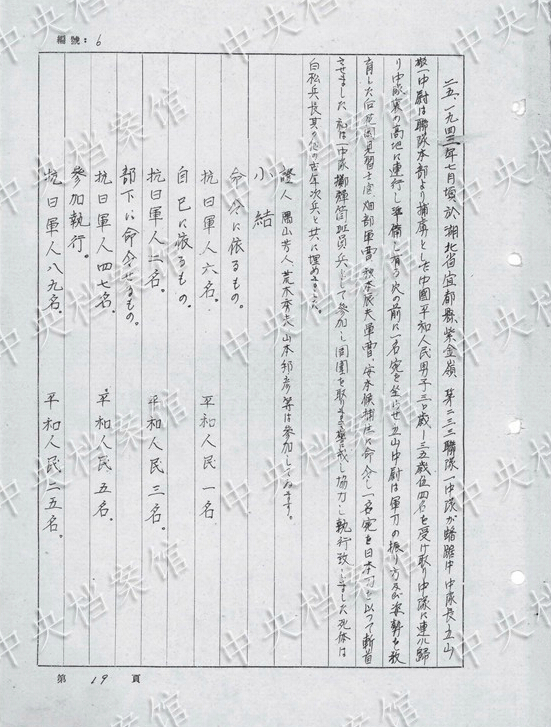 編號：6
二五、一九四三年七月頃於湖北省宜都縣紫金嶺 第二三三聯隊一中隊が蟠踞中 中隊長立山
中尉は聯隊本部より捕虜とした中國平和人民男子三〇歲―三五歲位四名を受け取り中隊に連れ歸
り中隊裏の高地に連行し準備し有る穴の前に一名宛を坐らせ立山中尉は軍刀の振り方及び姿勢を教
育した后 見習士官 畑部軍曹、 軍曹、 に命令し一名宛を日本刀を以つて斬首
させました 私は一中隊擲彈筒班員兵として參加し周圍を取りまき警戒し協力し執行致しました死体は
白松兵長其の他の 年次兵と共に埋めました。
證人 陽山芳人、荒木 山本邦彥等は參加して ます。
小結
命令に依るもの。
抗日軍人六名。 平和人民一名
自己に依るもの。
抗日軍人二名。 平和人民三名。
部下に命令せるもの。
抗日軍人四七名。 平和人民五名。
參加執行。
抗日軍人八九名。 平和人民二五名。
第 19 頁
中央档案馆